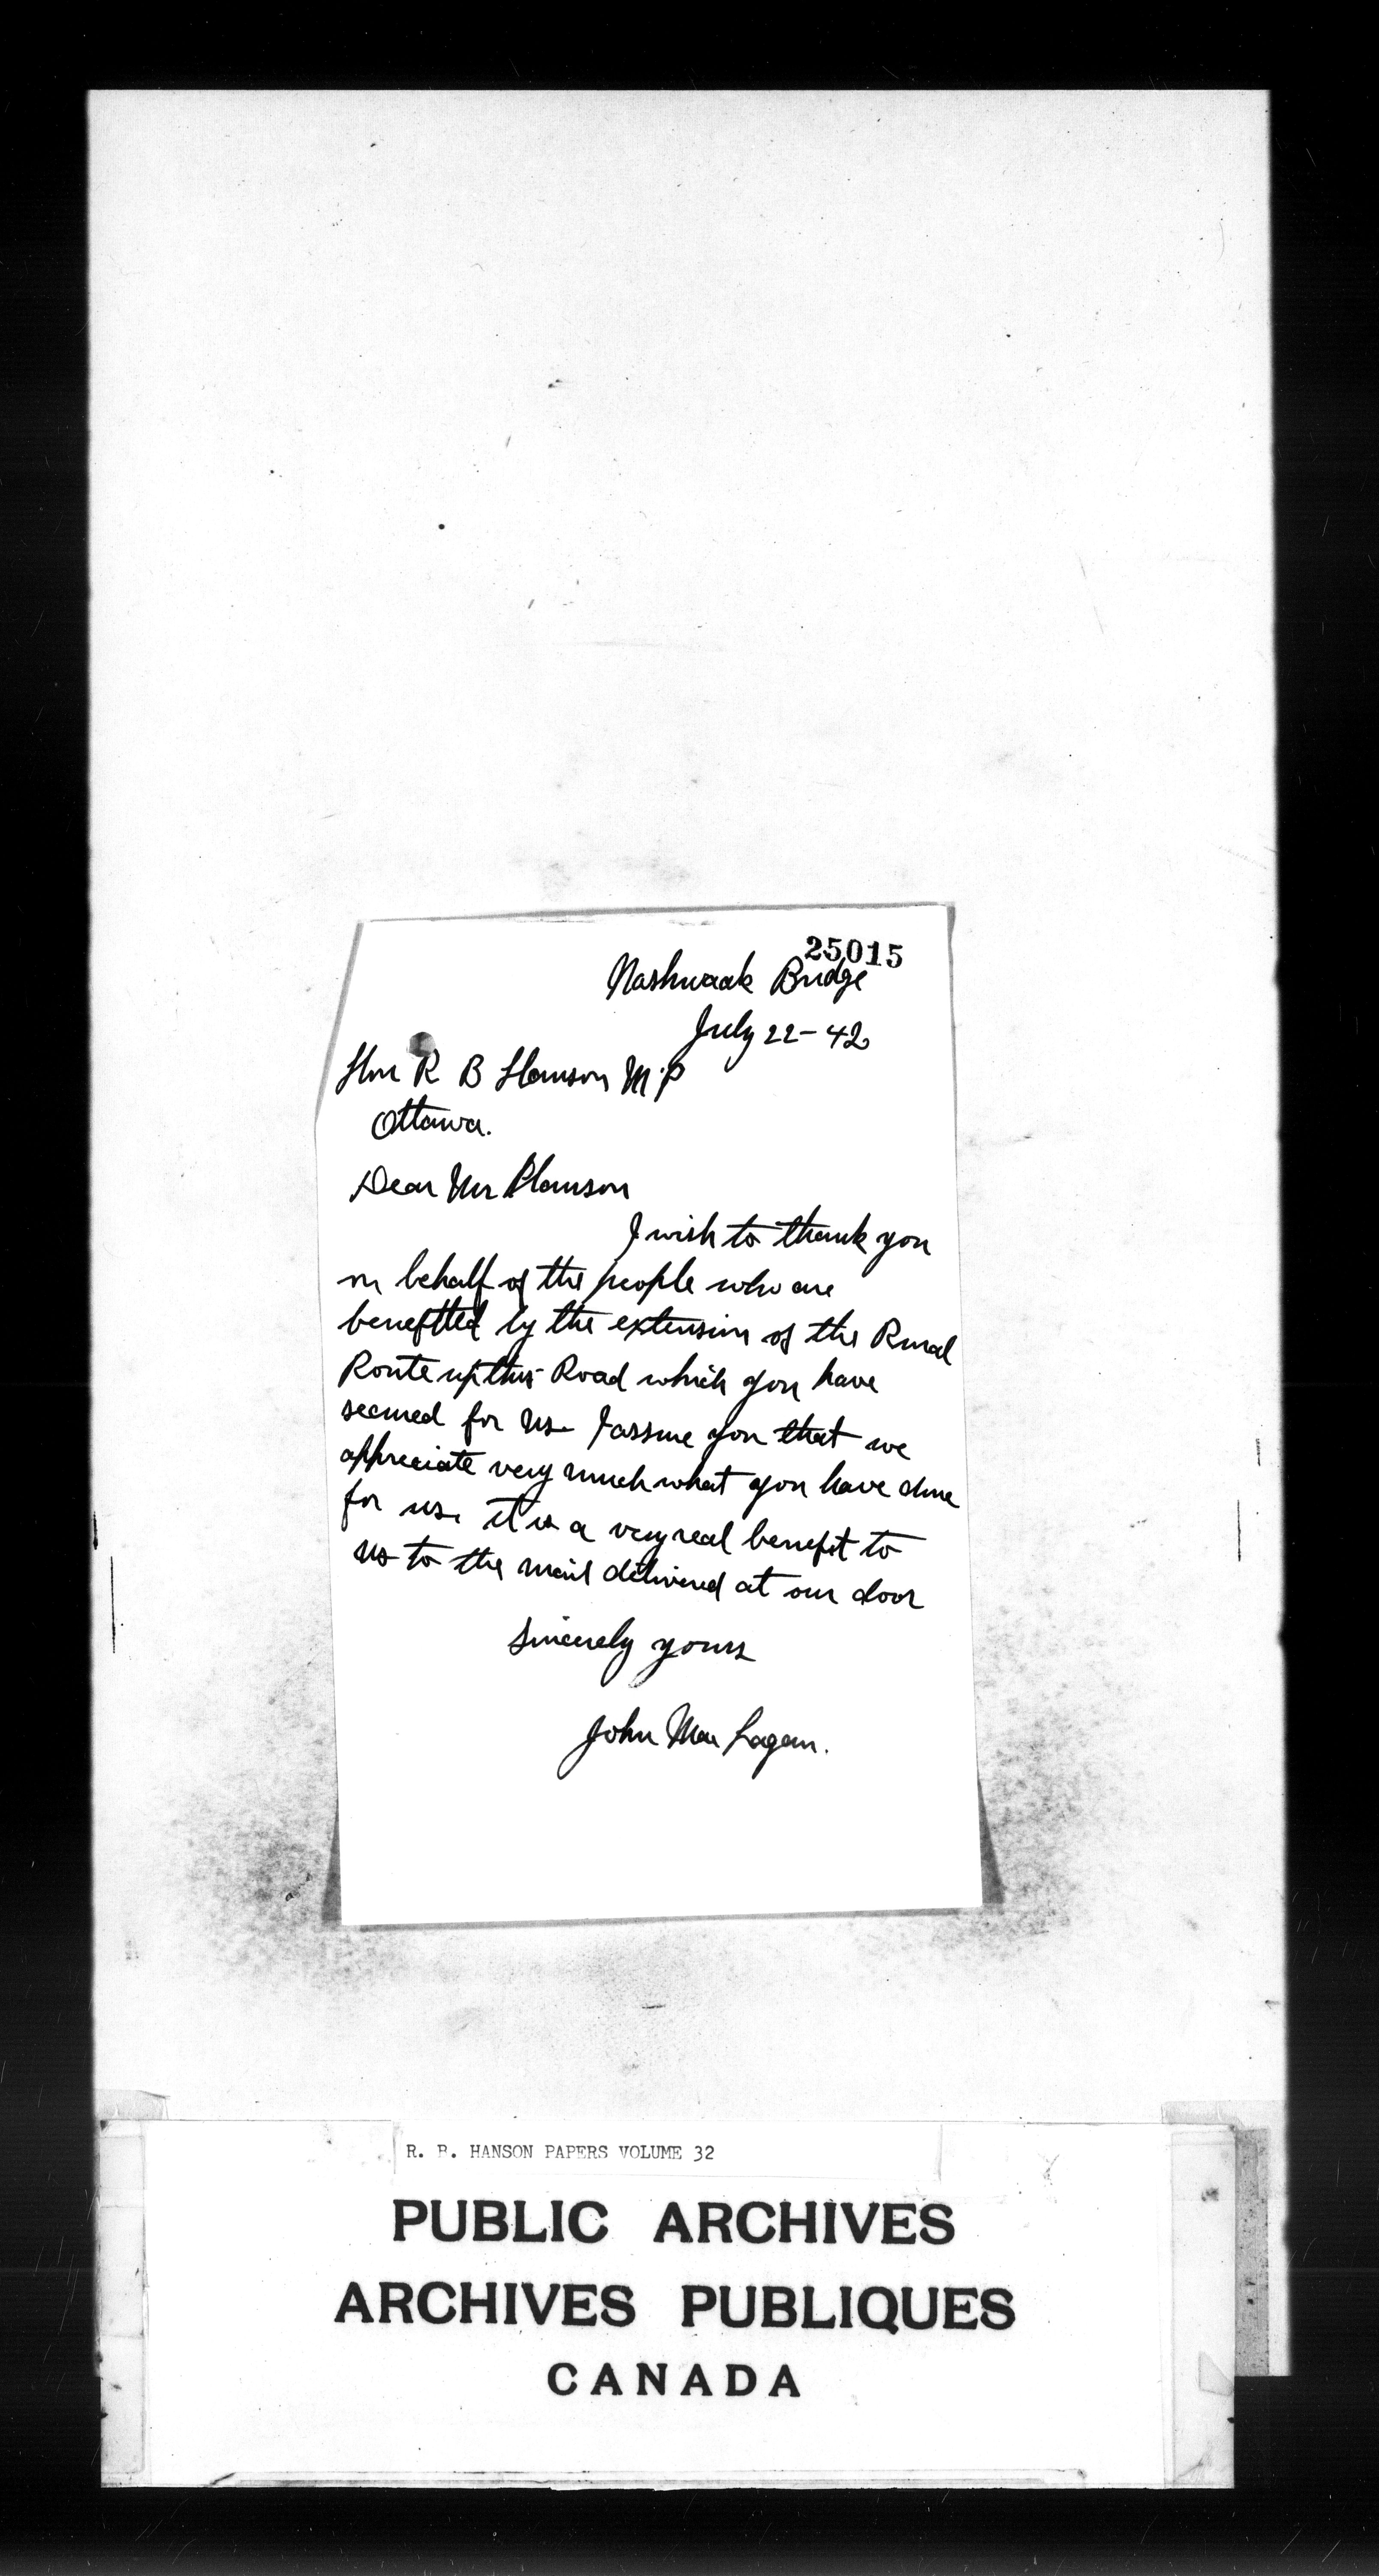 25015
Nashwaak Bridge
July 22-42
Hon R B Hanson M.P
Ottawa.
Dear Mr Hanson
I wish to thank you
on behalf of the people who are
benefitted by the extension of the Rural
Route up this Road which you have
secured for us. I assure you that we
appreciate very much what you have done
for us. it is a very real benefit to
us to the mail delivered at our door
Sincerely yours
John MacLagan.
R. B. HANSON PAPERS VOLUME 32
PUBLIC ARCHIVES
ARCHIVES PUBLIQUES
CANADA